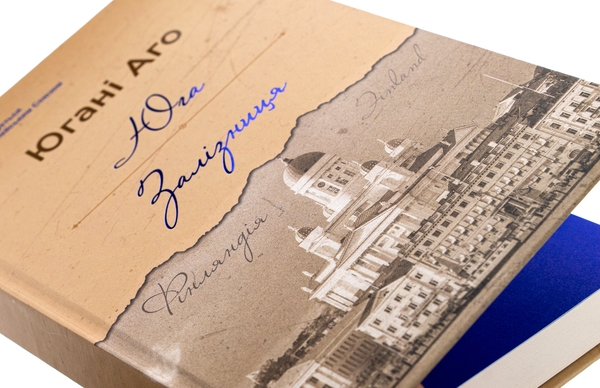 Югані Аго
Юга
Залізниця
Finland
Фінляндія